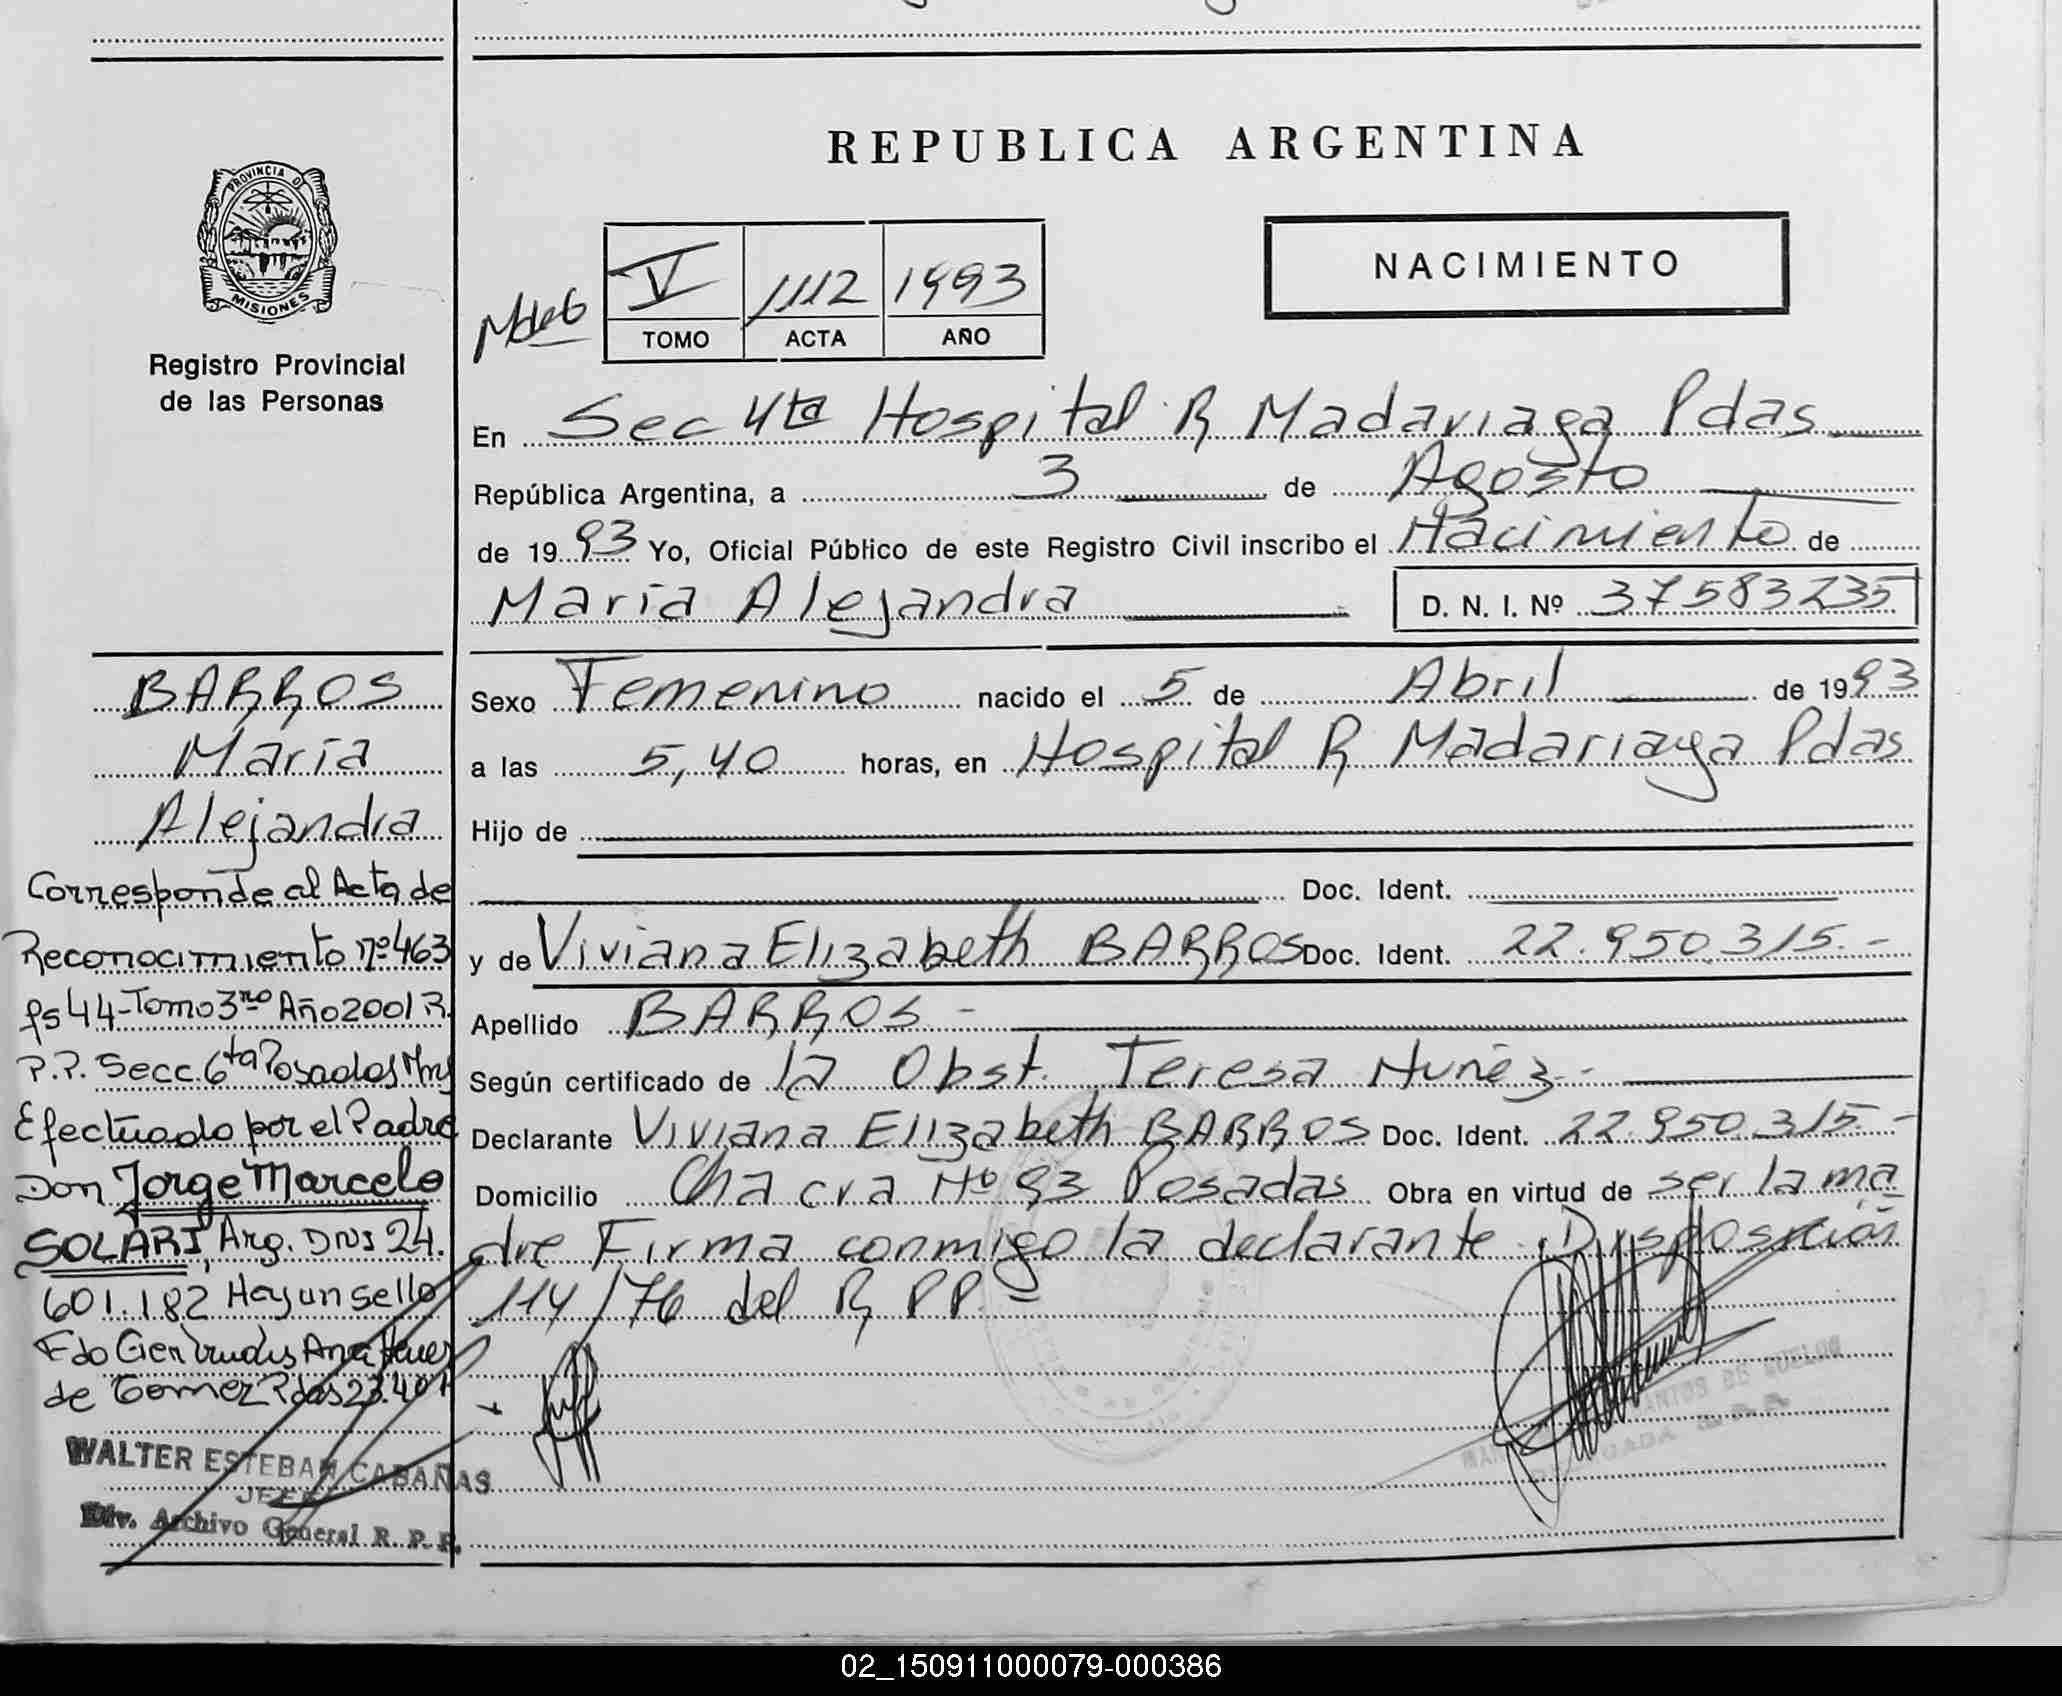 REPUBLICA ARGENTINA
PROVINCIA DE
MISIONES
Registro Provincial
de las Personas
V 1112 1993
TOMO ACTA AÑO
NACIMIENTO
En Sec 4ta Hospital R Madariaga Pdas
República Argentina, a 3 de Agosto
de 1993 Yo, Oficial Público de este Registro Civil inscribo el Nacimiento de
María Alejandra D. N. I. Nº 37583235
Sexo Femenino nacido el 5 de Abril de 1993
a las 5,40 horas, en Hospital R Madariaga Pdas
Hijo de
Doc. Ident.
y de Viviana Elizabeth BARROS Doc. Ident. 22.950.315.-
Apellido BARROS -
Según certificado de la Obst. Teresa Nuñez -
Declarante Viviana Elizabeth BARROS Doc. Ident. 22.950.315.-
Domicilio Chacra Nº 93 Posadas Obra en virtud de ser la ma
dre Firma conmigo la declarante. Disposición
114/76 del R P P.=
BARROS
María
Alejandra
Corresponde al Acta de
Reconocimiento nº 463
fs 44-Tomo 3ro Año 2001 R.
P.P. Secc. 6ta Posadas Mns
Efectuado por el Padre
Don Jorge Marcelo
SOLARI, Arg. DNI 24.
601.182 Hay un sello
Fdo Gertrudis Ana
de Gomez Pdas 23.4.01
WALTER ESTEBAN CABAÑAS
JEFE
Div. Archivo General R. P. P.
02_150911000079-000386